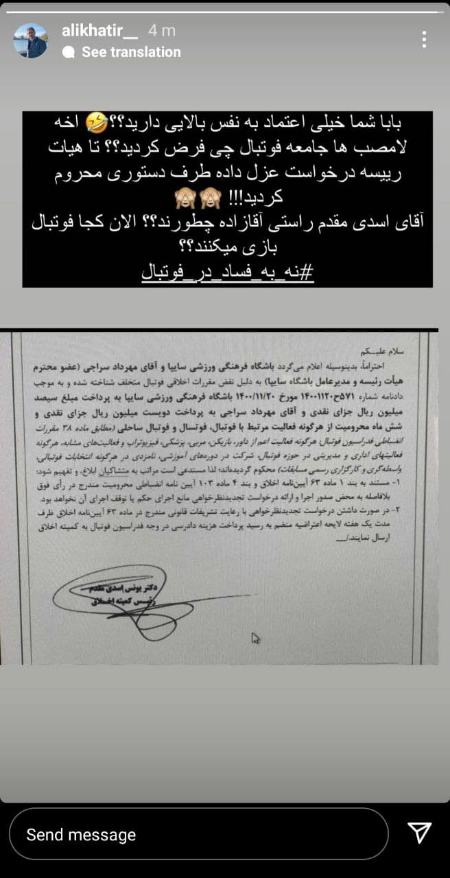 alikhatir__ 4 m
See translation
بابا شما خیلی اعتماد به نفس بالایی دارید؟؟🤣 اخه
لامصب ها جامعه فوتبال چی فرض کردید؟؟ تا هیات
رییسه درخواست عزل داده طرف دستوری محروم
کردید!!! 🙈🙈
آقای اسدی مقدم راستی آقازاده چطورند؟؟ الان کجا فوتبال
بازی میکنند؟؟
#نه_به_فساد_در_فوتبال
سلام علیـکم
احتراماً، بدینوسیله اعلام می‌گردد باشگاه فرهنگی ورزشی سایپا و آقای مهرداد سراجی (عضو محترم
هیأت رئیسه و مدیرعامل باشگاه سایپا) به دلیل نقض مقررات اخلاقی فوتبال متخلف شناخته شده و به موجب
دادنامه شماره مورخ ۱۴۰۰/۱۱/۲۰ باشگاه فرهنگی ورزشی سایپا به پرداخت مبلغ سیصد
میلیون ریال جزای نقدی و آقای مهرداد سراجی به پرداخت دویست میلیون ریال جزای نقدی و
شش ماه محرومیت از هرگونه فعالیت مرتبط با فوتبال، فوتسال و فوتبال ساحلی (مطابق ماده ۳۸ مقررات
انضباطی فدراسیون فوتبال: هرگونه فعالیت اعم از داور، بازیکن، مربی، پزشک، فیزیوتراپ و فعالیت‌های مشابه، هرگونه
فعالیتهای اداری و مدیریتی در حوزه فوتبال، شرکت در دوره‌های آموزشی، نامزدی در هرگونه انتخابات فوتبالی،
واسطه‌گری و کارگزاری رسمی مسابقات) محکوم گردیده‌اند؛ لذا مستدعی است مراتب به متشاکیان ابلاغ، و تفهیم شود:
۱- مستند به بند ۱ ماده ۶۳ آیین‌نامه اخلاق و بند ۴ ماده ۱۰۳ آیین نامه انضباطی محرومیت مندرج در رأی فوق
بلافاصله به محض صدور اجرا و ارائه درخواست تجدیدنظرخواهی مانع اجرای حکم یا توقف اجرای آن نخواهد بود.
۲- در صورت داشتن درخواست تجدیدنظرخواهی با رعایت تشریفات قانونی مندرج در ماده ۶۳ آیین‌نامه اخلاق ظرف
مدت یک هفته لایحه اعتراضیه منضم به رسید پرداخت هزینه دادرسی در وجه فدراسیون فوتبال به کمیته اخلاق
ارسال نمایند./
دکتر یونس اسدی مقدم
رئیس کمیته اخلاق
Send message